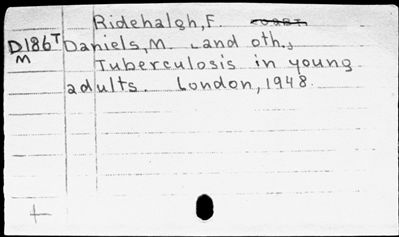 Ridehalgh, F.
D186T Daniels, M. and oth.,
M Tuberculosis in young
adults. London, 1948.